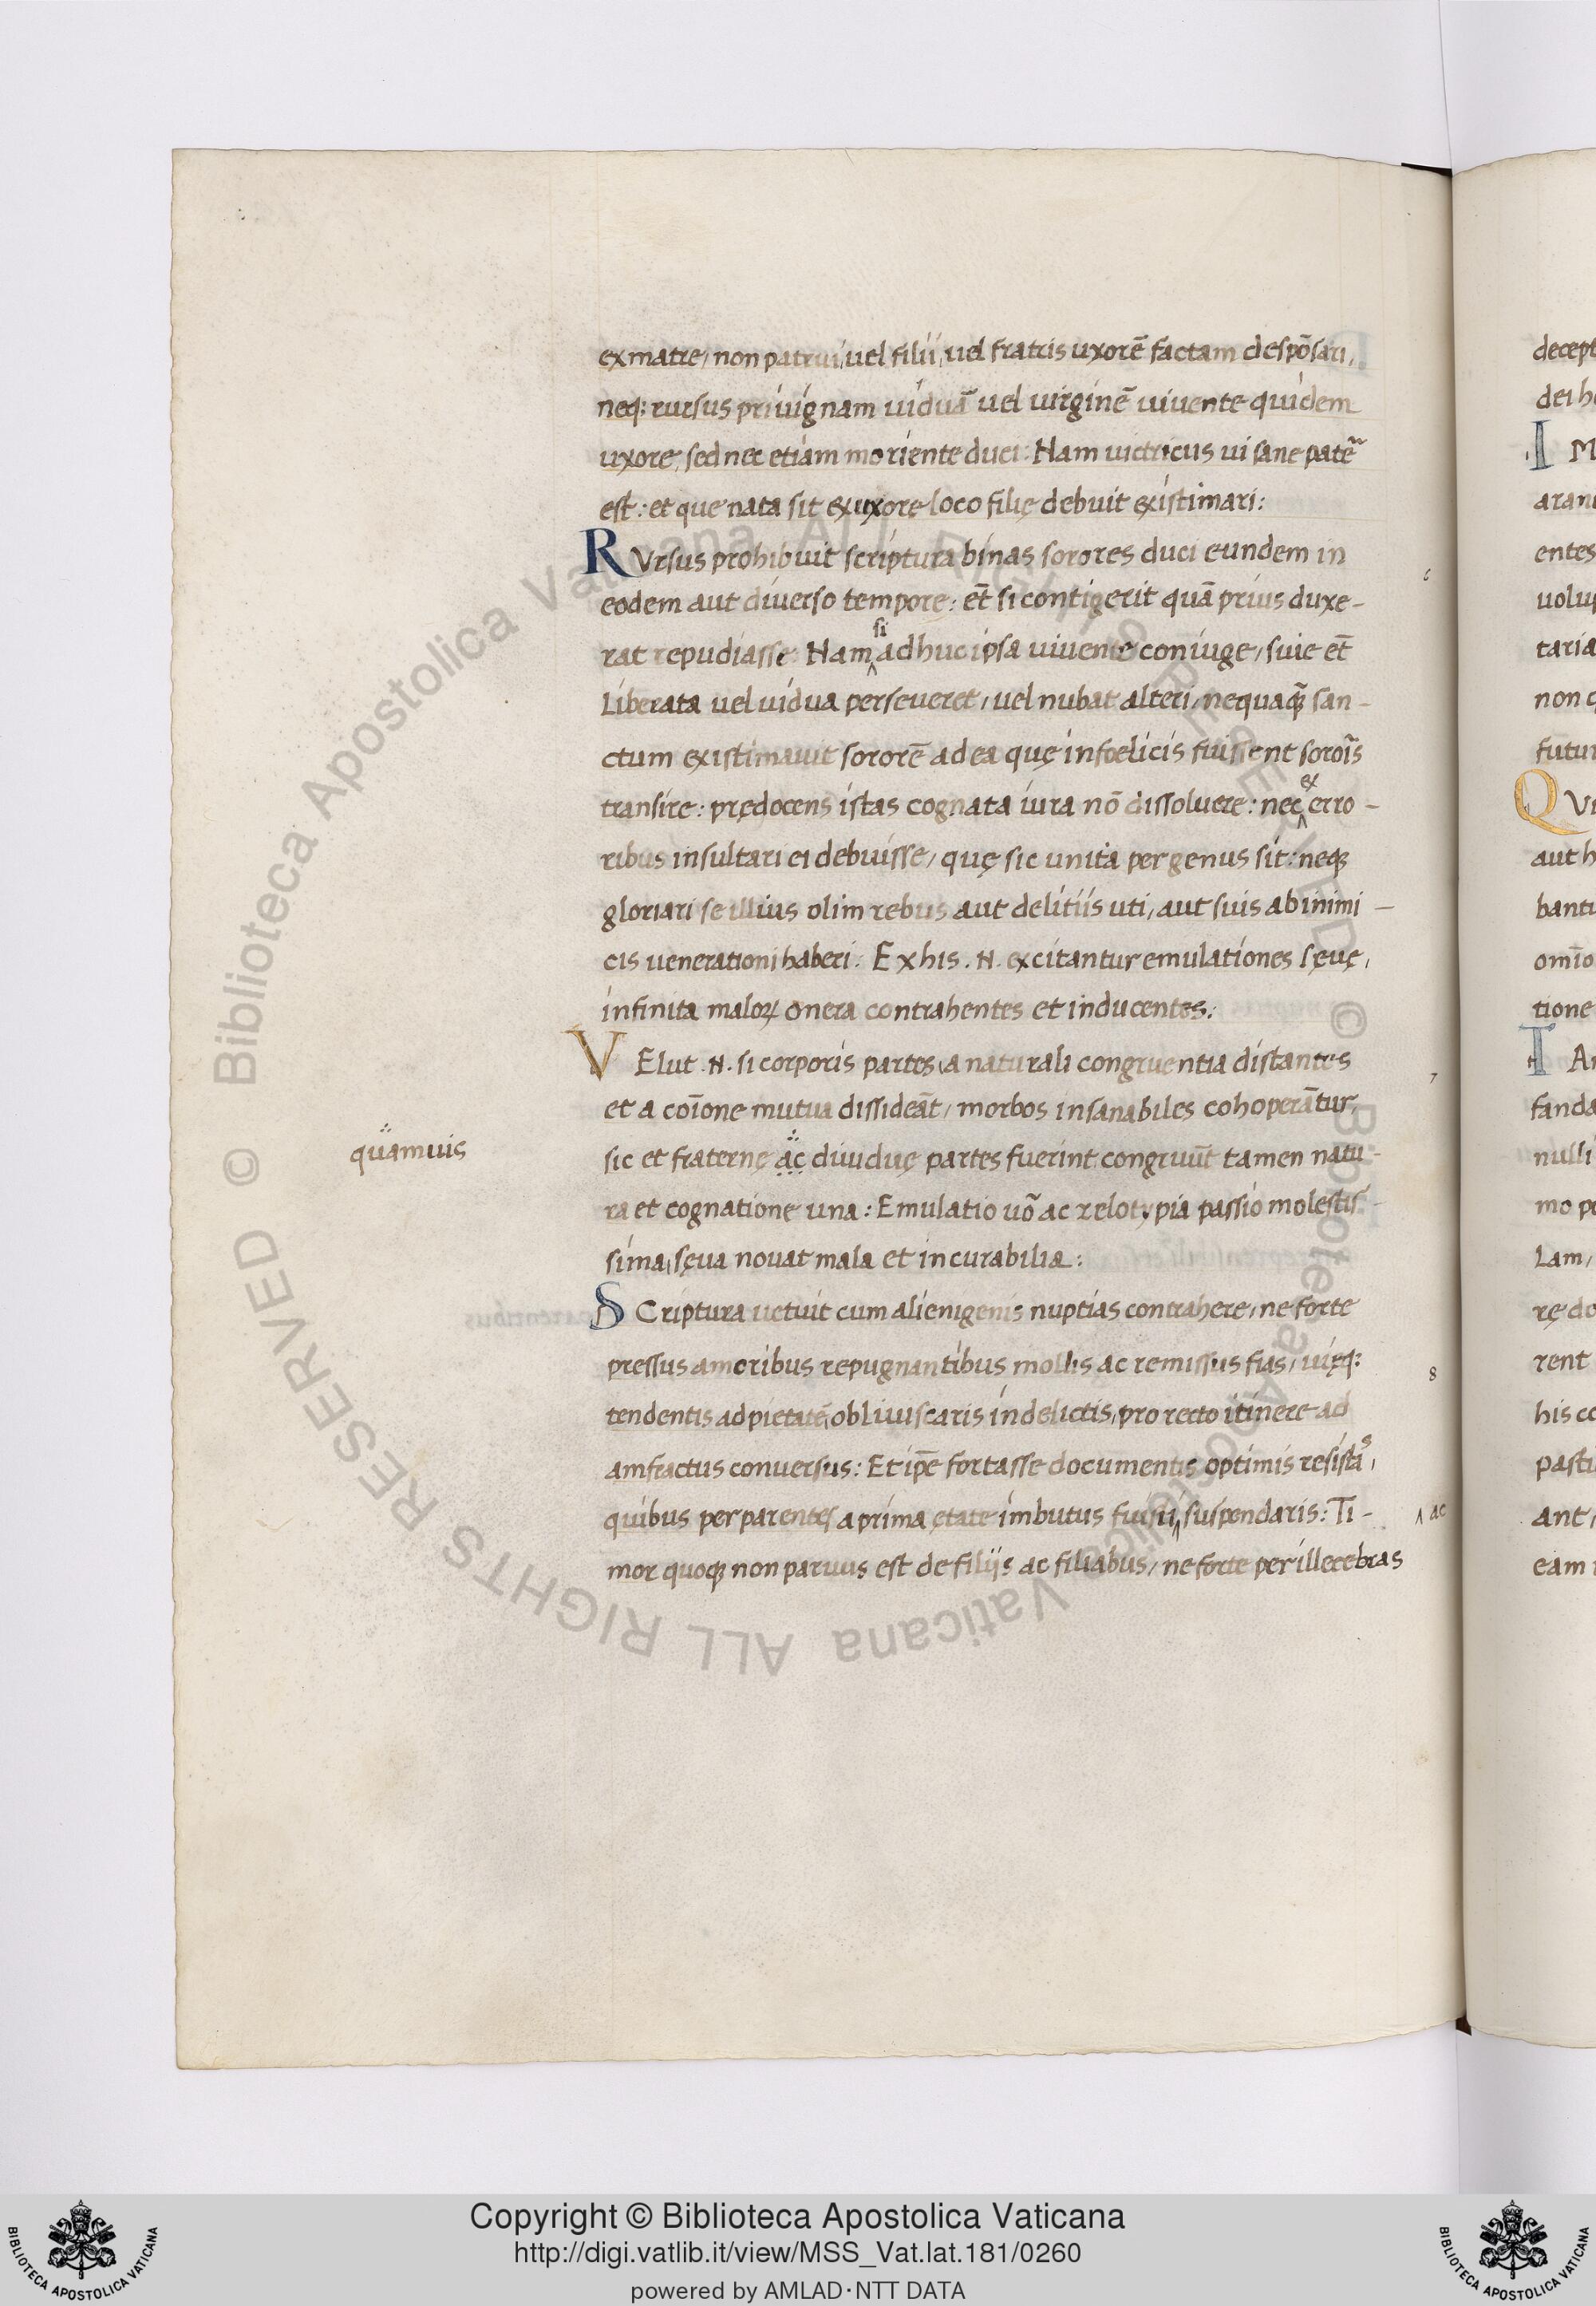 ex matre, non patrui, uel filii, uel fratris uxorē factam despōsari,
neq; rursus priuignam uiduā uel uirginē uiuente quidem
uxore, sed nec etiam moriente duci: Nam uictricus ui sane patē
est: et que nata sit ex uxore loco filię debuit existimari:
RVrsus prohibuit scriptura binas sorores duci eundem in
eodem aut diuerso tempore: et̄ si contigerit quā prius duxe-
rat repudiasse: Nam si adhuc ipsa uiuente coniuge, siue et̄
Liberata uel uidua perseueret, uel nubat alteri, nequaqꝫ san-
ctum existimauit sororē ad ea quę infoelicis fuissent soroı̄s
transire: prędocens istas cognata iura nō dissoluere: nec ex erro-
ribus insultari ei debuisse, quę sic unita per genus sit: neqꝫ
gloriari se illius olim rebus aut delitiis uti, aut suis ab inimi-
cis uenerationi haberi: Ex his .N. excitantur emulationes sęuę,
infinita maloꝝ onera contrahentes et inducentes:
VElut .N. si corporis partes, a naturali congruentia distantes
et a coı̄one mutua dissideāt, morbos insanabiles cohoperātur,
quamuis
sic et fraternę ac diuiduę partes fuerint congruūt tamen natu-
ra et cognatione una: Emulatio uō ac zelotypia passio molestis-
sima, sęua nouat mala et incurabilia:
SCriptura uetuit cum alienigenis nuptias contrahere, ne forte
pressus amoribus repugnantibus mollis ac remissus fias, uięq;
tendentis ad pietatē, obliuiscaris in delictis, pro recto itinere ad
amfractus conuersus: Et ip̄e fortasse documentis optimis resistās,
quibus per parentes a prima ętate imbutus fuisti, suspendaris: Ti-
ac
mor quoqꝫ non paruus est de filijs ac filiabus, ne forte per illecebras
6
7
8
decept
dei h
IM
aran
entes
uolup
taria
non q
futur
QVi
aut h
bantu
omı̄o
tione
fanda
nulli
mo po
Lam,
rę do
rent
his co
pastu
ant,
eam
© Biblioteca Apostolica Vaticana ALL RIGHTS RESERVED © Biblioteca Apostolica Vaticana ALL RIGHTS RESERVED
Copyright © Biblioteca Apostolica Vaticana
http://digi.vatlib.it/view/MSS_Vat.lat.181/0260
powered by AMLAD·NTT DATA
BIBLIOTECA APOSTOLICA VATICANA
BIBLIOTECA APOSTOLICA VATICANA